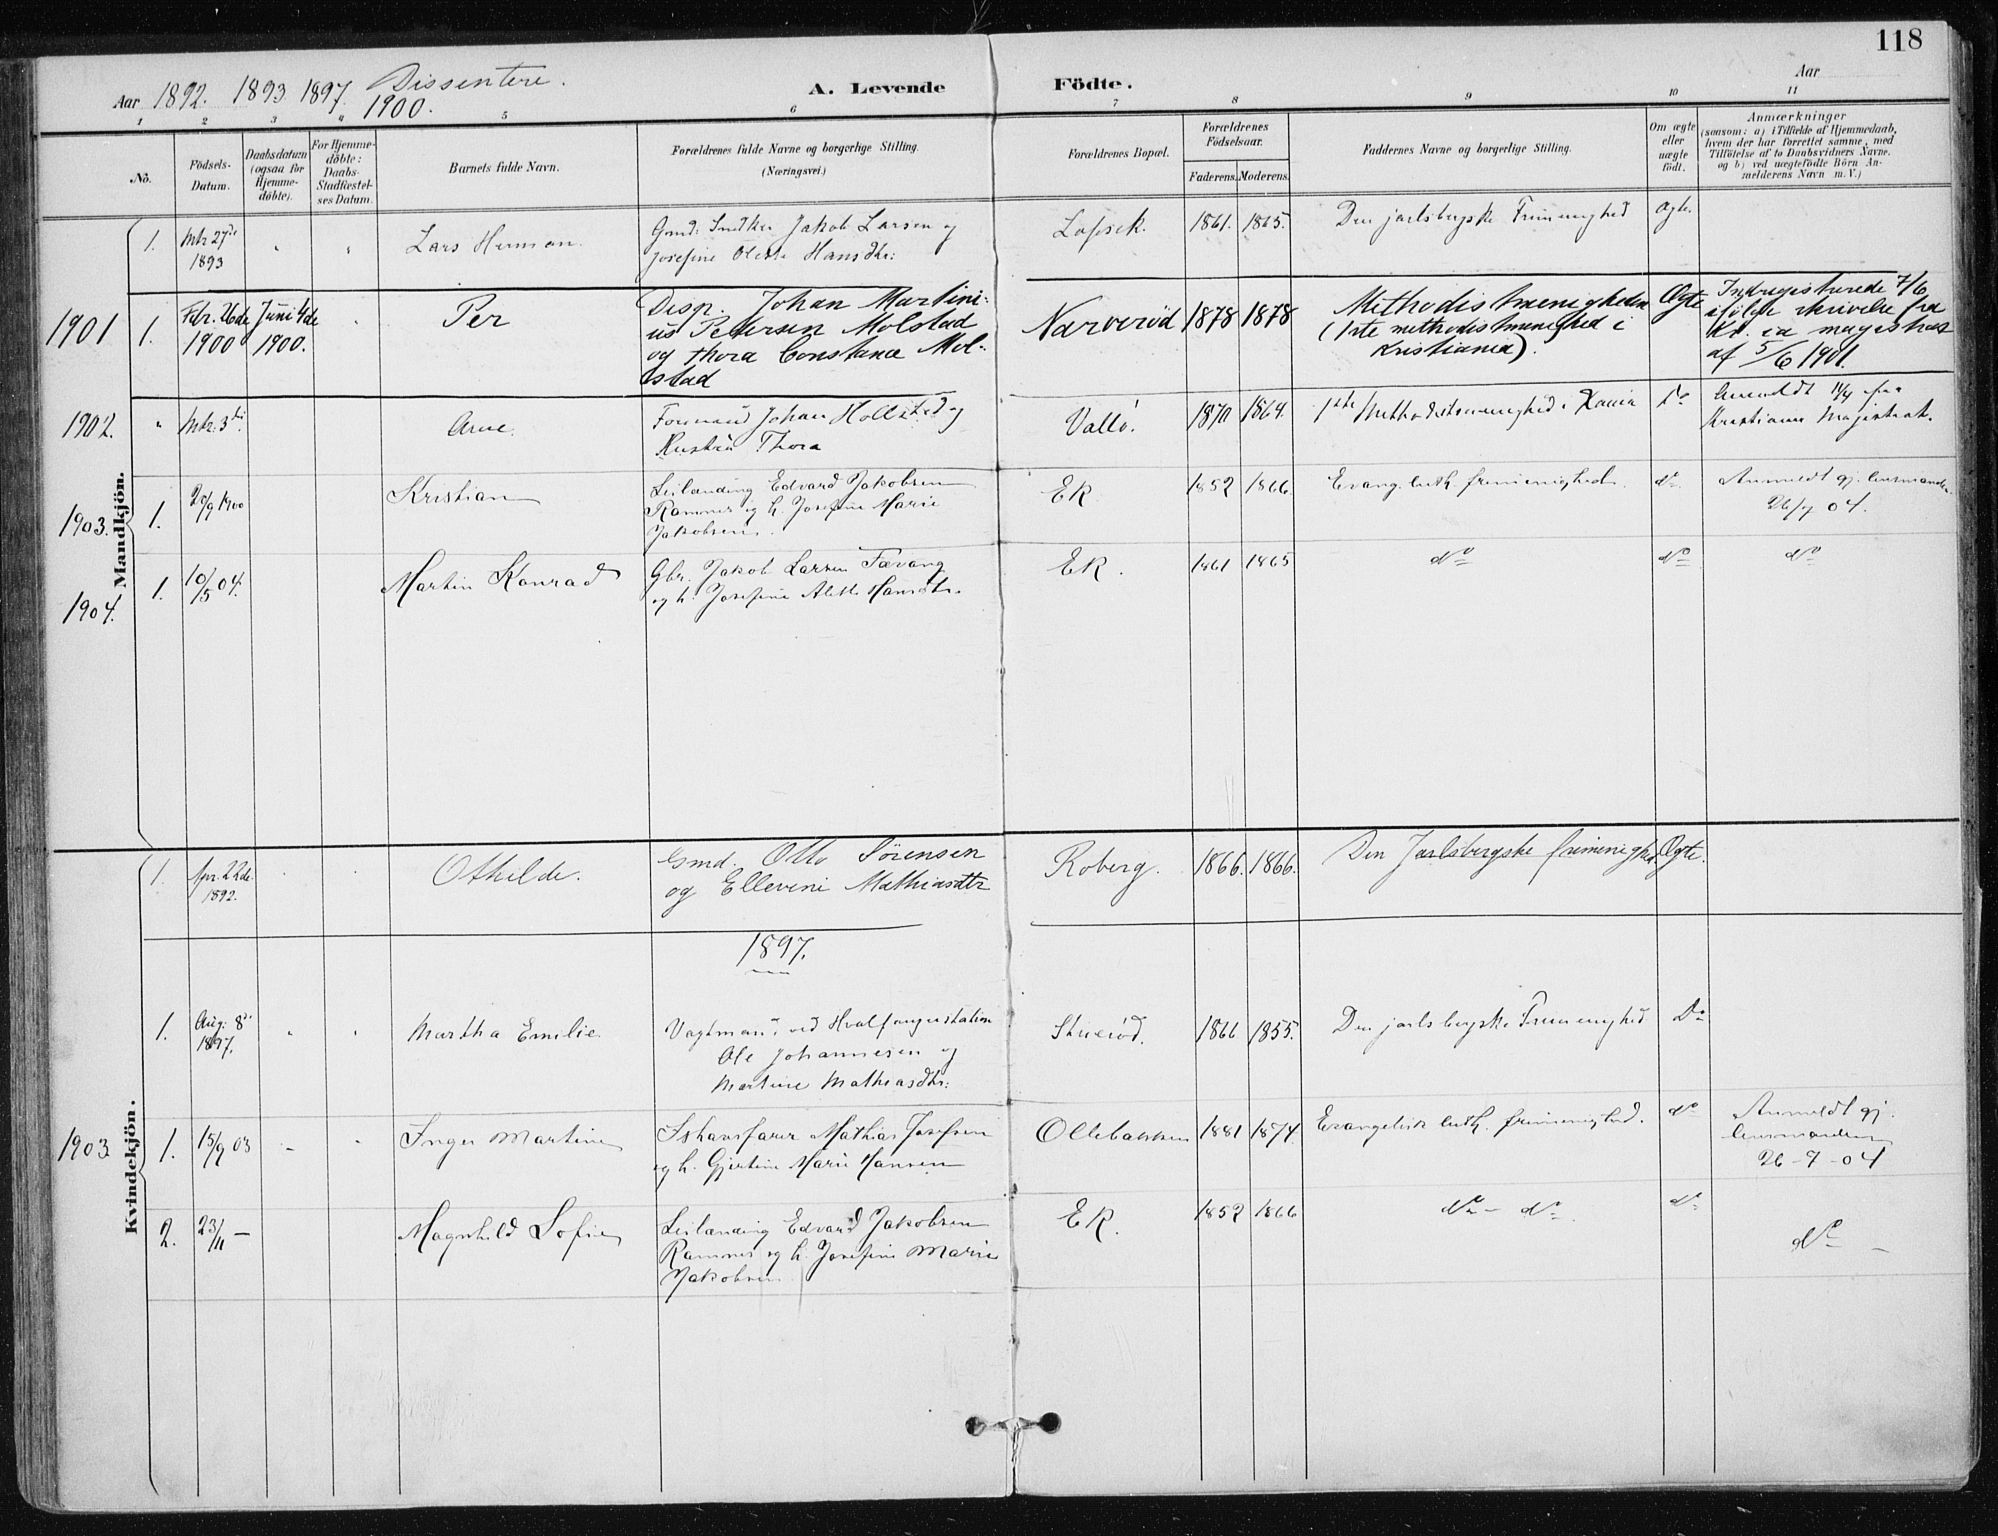 118
Aar 1892. 1893 1897. Dissentere.
1900.
A. Levende Födte.
Aar
1 2 3 4 5 6 7 8 9 10 11
No.
Födsels-
Datum.
Daabsdatum
(ogsaa for
Hjemme-
döbte).
For Hjemme-
döbte:
Daabs-
Stadfæstel-
ses Datum.
Barnets fulde Navn.
Forældrenes fulde Navne og borgerlige Stilling.
(Næringsvei.)
Forældrenes Bopæl.
Forældrenes
Födselsaar.
Faderens. Moderens.
Faddernes Navne og borgerlige Stilling.
Om ægte
eller
uægte
födt.
Anmærkninger
(saasom: a) i Tilfælde af Hjemmedaab,
hvem der har forrettet samme, med
Tilföielse af to Daabsvidners Navne.
og b) ved uægtefödte Börn An-
melderens Navn m. V.)
Mandkjön.
1. Mts 27de
1893
Lars Herman.
Gmd: Jakob Larsen og
Josefine Olette Hansdtr:
1861. 1865.
Den jarlsbergske Frimenighed
Ægte.
1901 1. Febr. 26de
1900
Juni 4de
1900.
Per
Disp. Johan Martini-
us Petersen Molstad
og Thora Constance Mol-
stad
Narverød 1878 1878
Methodistmenigheden
(1ste methodistmenighed i
Kristiania).
Ægte
Indregistrerede 7/6
ifölge skrivelse fra
Kr.ia magistrat
af 5/6 1901.
1902. " Mts. 3die
Arne.
Formand Johan Hollsted og
Hustru Thora
Vallö. 1870 1864.
1ste Methodistmenighed i
Do
Anmeldt 11/4 fra
Kristiania Magistrat.
1903. 1. 20/9 1900
Kristian
Leilænding Edvard Jakobsen
Ramnes og h. Josefine Marie
Jakobsen.
Ek. 1852 1866.
Evang. luth. frimenighed.
do
Anmeldt gj. lensmanden
26/7 04.
1904. 1. 10/5 04.
Martin Konrad
Gbr. Jakob Larsen Favang
og h. Josefine Alette Hansdtr.
Ek. 1861 1865
do
do
do
Kvindekjön.
1. Apr. 22de
1892.
Othilde.
Gmd. Otto Sörensen
og Ellevine Mathiasdtr
Roberg. 1866. 1866.
Den Jarlsbergske frimenighed
Ægte.
1897.
1. Aug: 8de
1897.
Martha Emilie.
Vagtmand ved Hvalfangerstation
Ole Johannesen og
Martine Mathiasdtr:
1866 1855.
Den jarlsbergske Frimenighed
Do
1903 1. 15/9 03
Inger Martine
Ishavsfarer Mathias Josefsen
og h. Gjertine Marie Hansen
Ollebakken 1881 1874.
Evangelisk luth. frimenighed.
do
Anmeldt gj.
lensmanden
26-7-04
2. 23/11 –
Magnhild Sofie
Leilænding Edvard Jakobsen
Ramnes og h. Josefine Marie
Jakobsen
Ek. 1852 1866
do – do.
do
do –